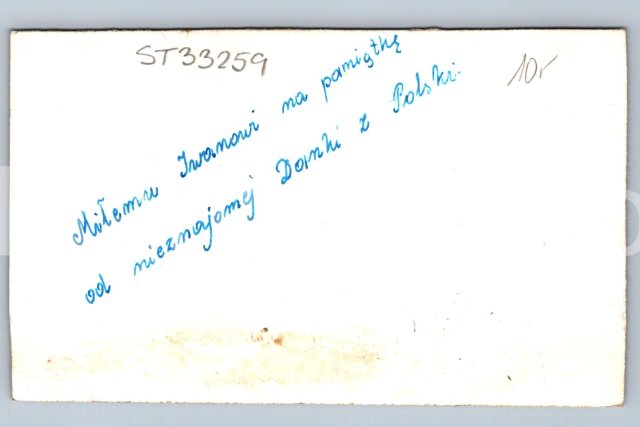 ST33259
10,-
Miłemu Iwanowi na pamiątkę
od nieznajomej Danki z Polski.